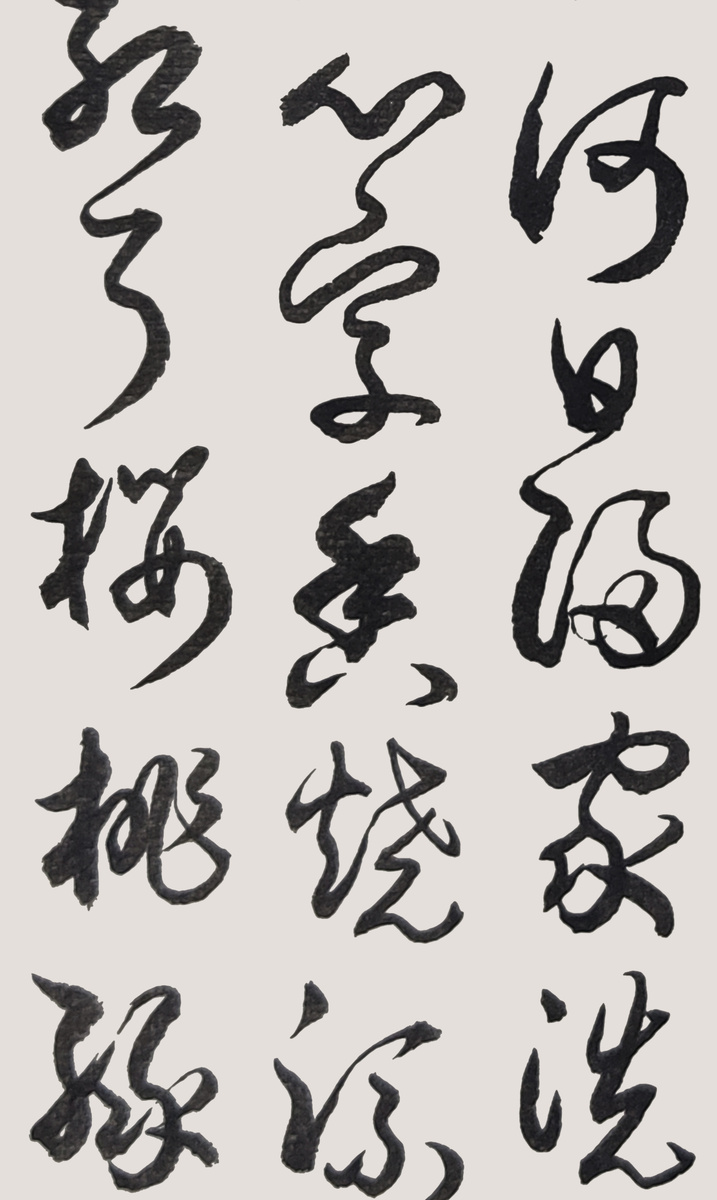 何日歸家洗
心字香燒流
紅了櫻桃綠